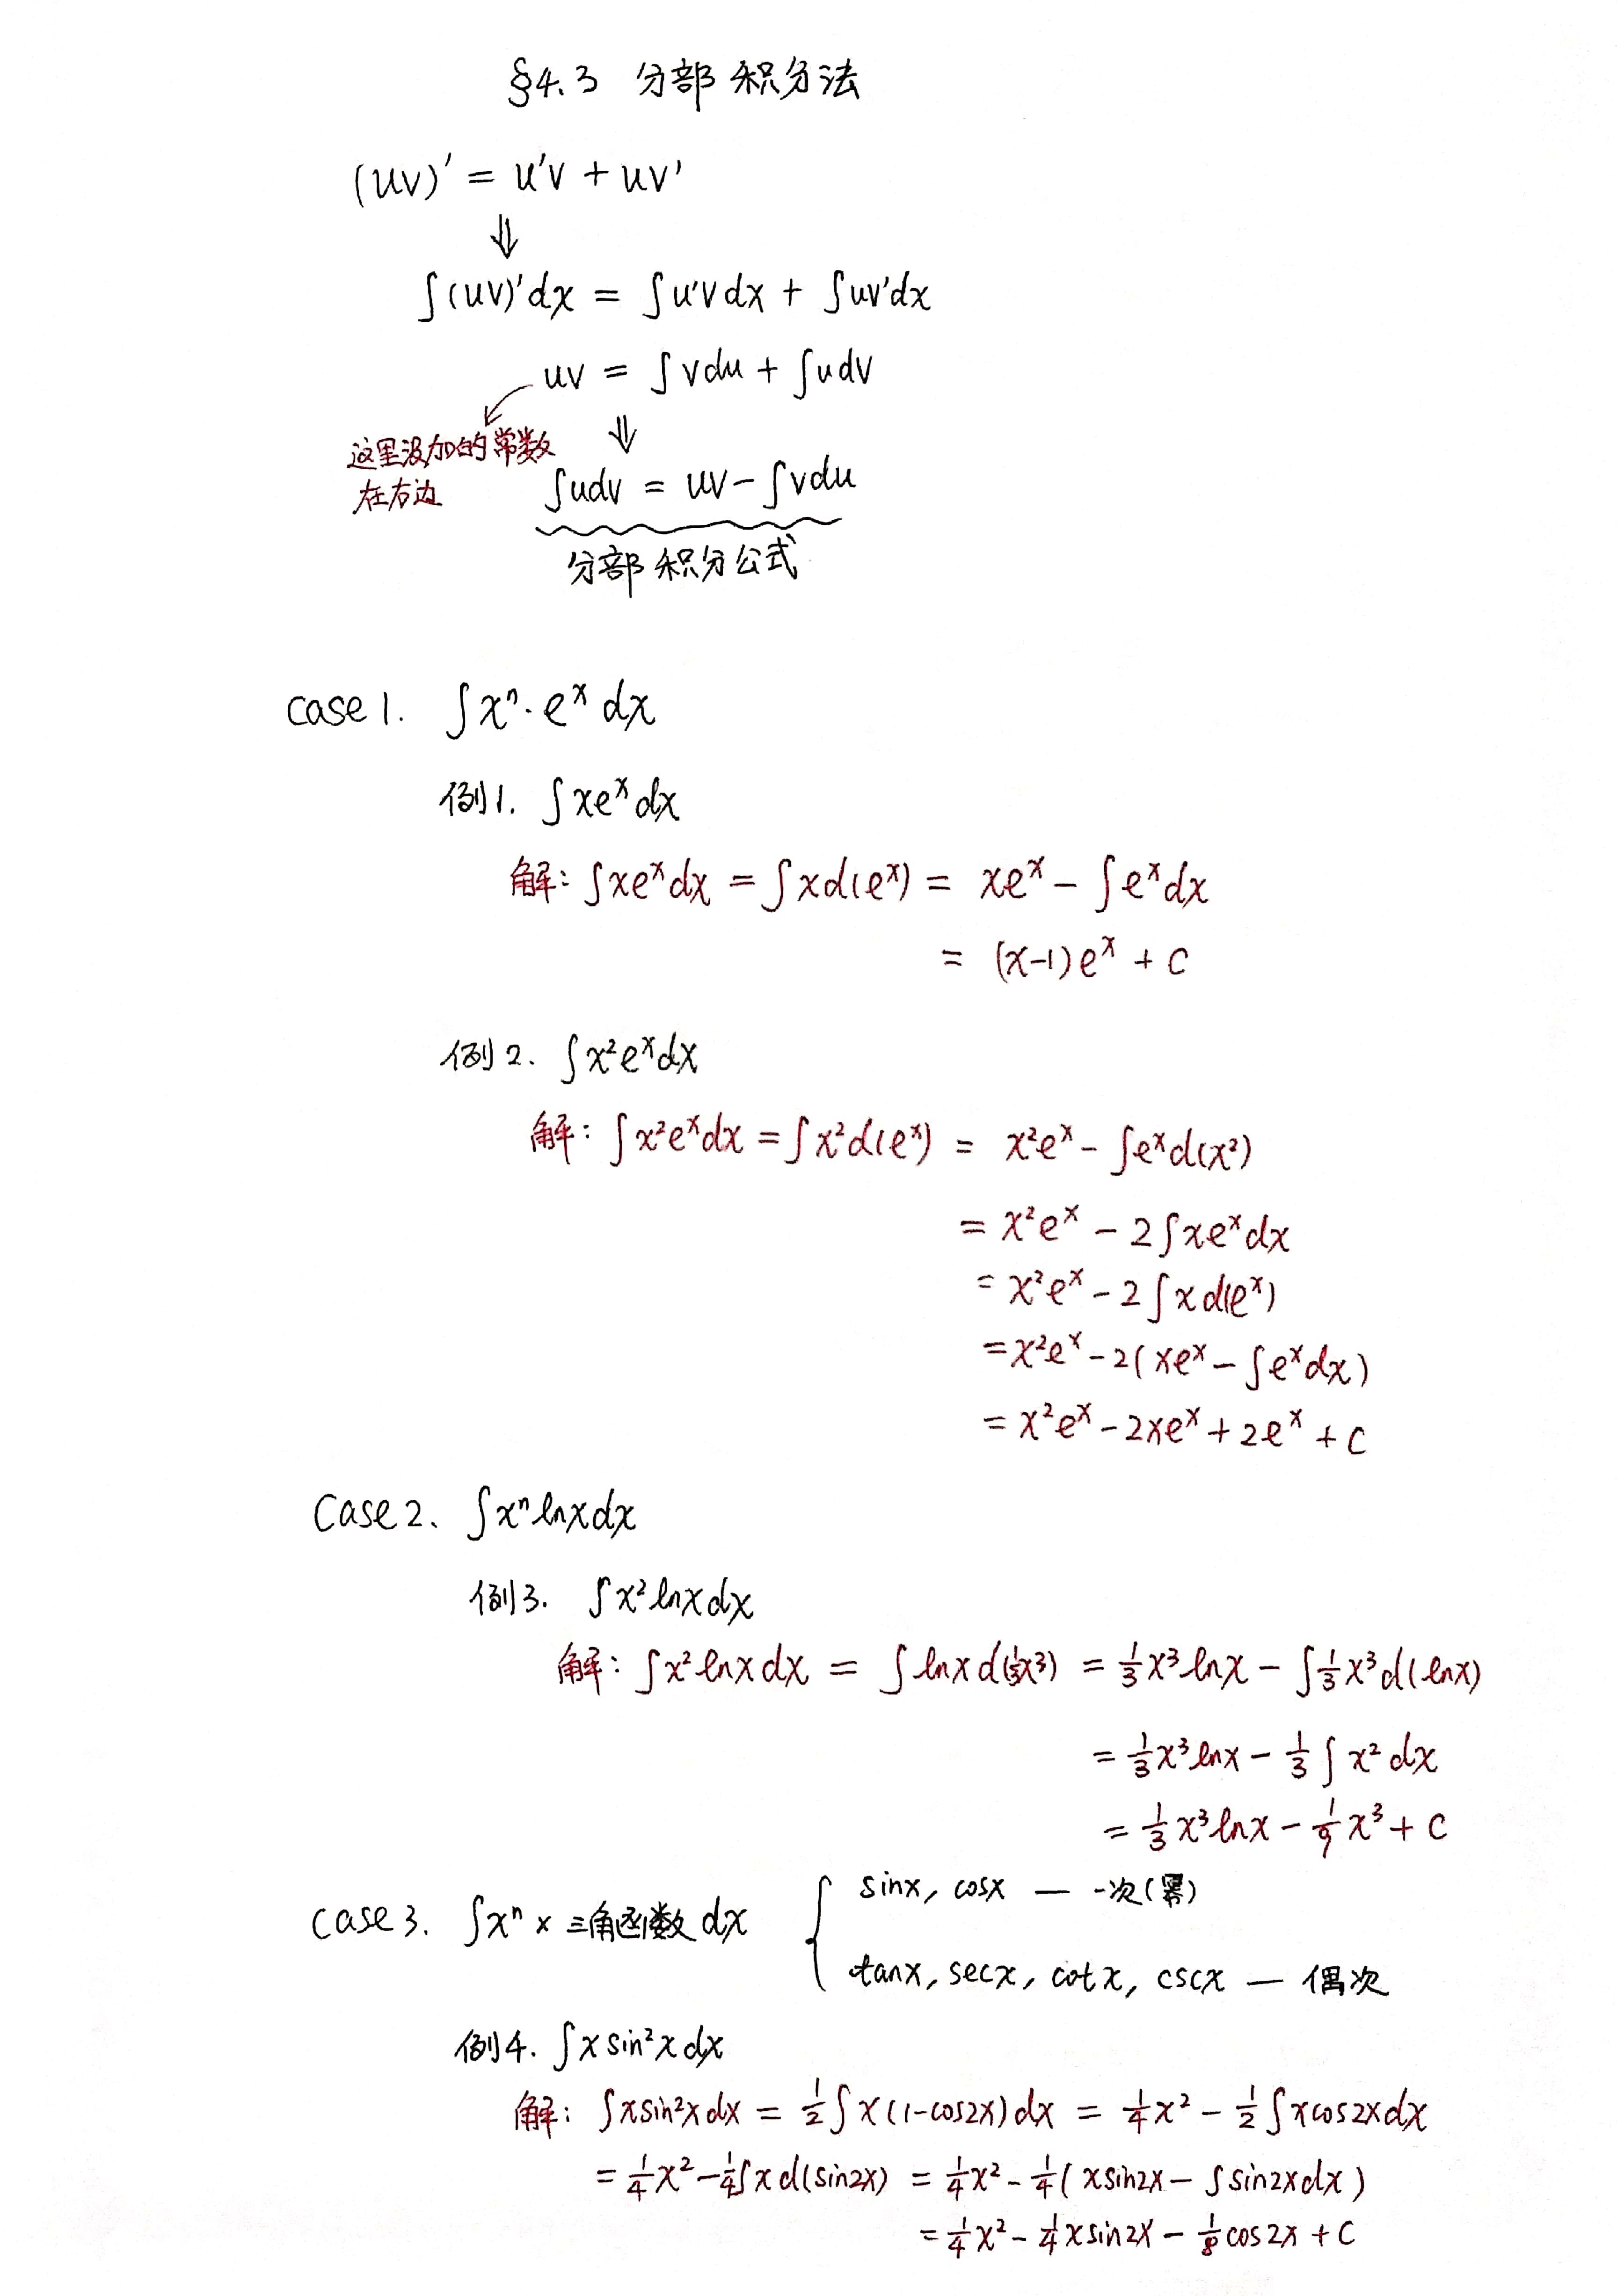 §4.3 分部积分法
(uv)' = u'v + uv'
⇓
∫(uv)'dx = ∫u'vdx + ∫uv'dx
uv = ∫vdu + ∫udv
这里没加的常数
在右边
⇓
∫udv = uv - ∫vdu
分部积分公式
case 1. ∫xⁿ·eˣ dx
例1. ∫xeˣdx
解: ∫xeˣdx = ∫xd(eˣ) = xeˣ - ∫eˣdx
= (x-1)eˣ + C
例2. ∫x²eˣdx
解: ∫x²eˣdx = ∫x²d(eˣ) = x²eˣ - ∫eˣd(x²)
= x²eˣ - 2∫xeˣdx
= x²eˣ - 2∫xd(eˣ)
= x²eˣ - 2(xeˣ - ∫eˣdx)
= x²eˣ - 2xeˣ + 2eˣ + C
Case 2、 ∫xⁿlnxdx
例3. ∫x²lnxdx
解: ∫x²lnxdx = ∫lnxd(⅓x³) = ⅓x³lnx - ∫⅓x³d(lnx)
= ⅓x³lnx - ⅓∫x²dx
= ⅓x³lnx - ⅑x³ + C
case 3. ∫xⁿ × 三角函数 dx { sinx, cosx — 一次(幂)
tanx, secx, cotx, cscx — 偶次
例4. ∫xsin²xdx
解: ∫xsin²xdx = ½∫x(1-cos2x)dx = ¼x² - ½∫xcos2xdx
= ¼x² - ¼∫xd(sin2x) = ¼x² - ¼(xsin2x - ∫sin2xdx)
= ¼x² - ¼xsin2x - ⅛cos2x + C